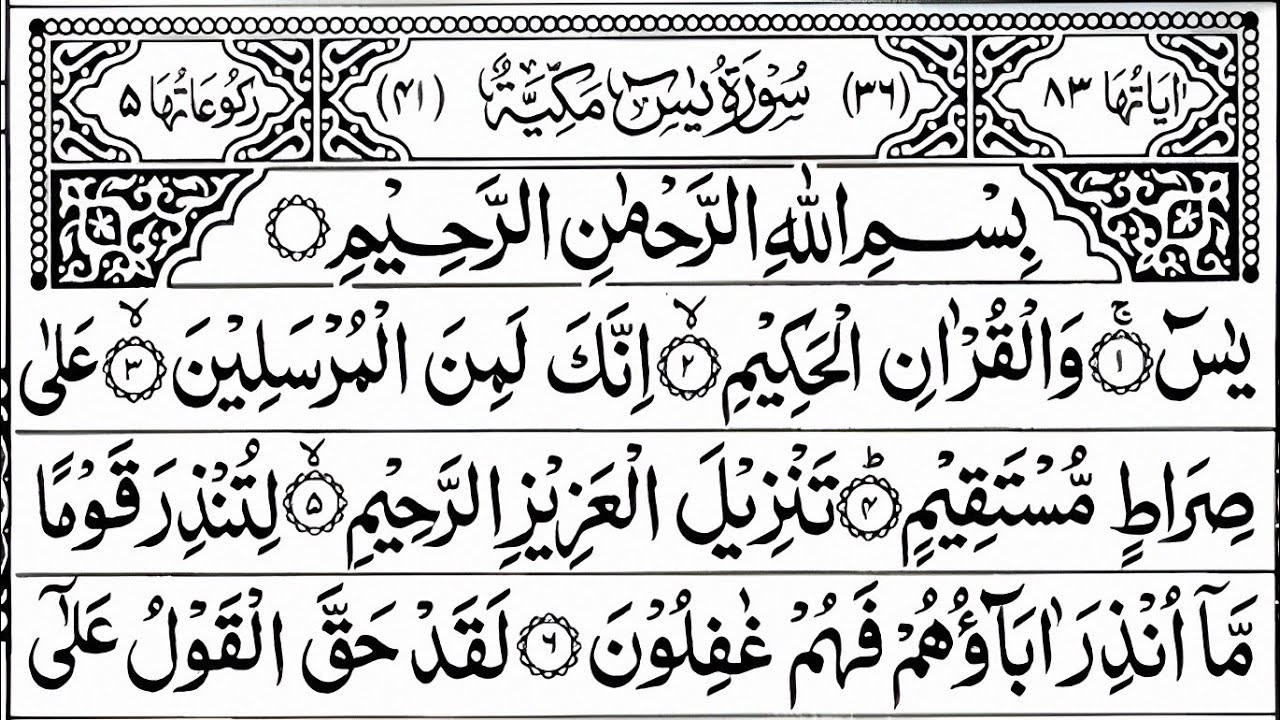 اٰيَاتُهَا ٨٣ (٣٦) سُوْرَةُ يٰسٓ مَكِّيَّةٌ (٤١) رُكُوْعَاتُهَا ٥
بِسْمِ اللهِ الرَّحْمٰنِ الرَّحِيْمِ
يٰسٓ ۚ﴿١﴾ وَالْقُرْاٰنِ الْحَكِيْمِ ۙ﴿٢﴾ اِنَّكَ لَمِنَ الْمُرْسَلِيْنَ ۙ﴿٣﴾ عَلٰى
صِرَاطٍ مُّسْتَقِيْمٍ ؕ﴿۴﴾ تَنْزِيْلَ الْعَزِيْزِ الرَّحِيْمِ ۙ﴿۵﴾ لِتُنْذِرَ قَوْمًا
مَّاۤ اُنْذِرَ اٰبَآؤُهُمْ فَهُمْ غٰفِلُوْنَ ﴿٦﴾ لَقَدْ حَقَّ الْقَوْلُ عَلٰۤى